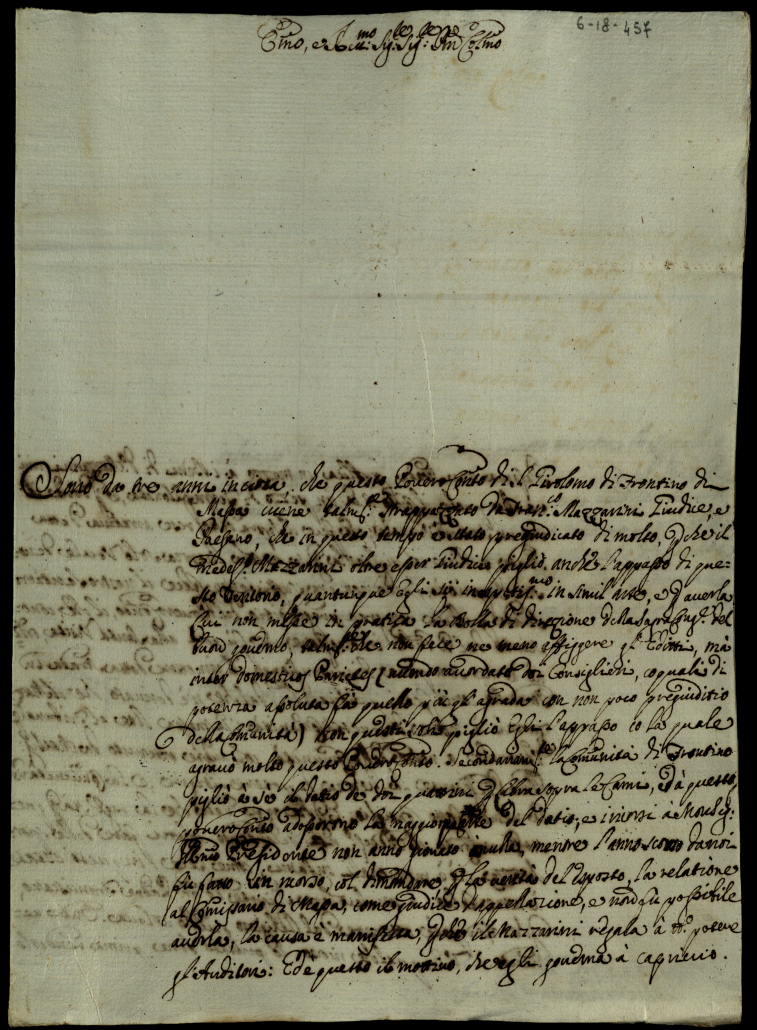 6-18-457
Em̃o, e R.mo Sig.re Sig.re P̃ron Col.mo
Sono da tre anni in circa, che questo Povero Conto di S. Girolomo di Frontino di
Massa viene talm.te strappazzato da Fran.co Mazzarini Giudice, e
Paesano, che in questo tempo è stato pregiudicato di molto, p̃che il
Preded.o Mazzarini oltre esser Giudice pigliò anche l'appasso di que-
sto Ventono, quantunque egli sij in simil arte, e p̃ averla
lui non messe in pratica la Bolla di direzione della Sagra Cong.e del
buon governo, talm.te che non fece ne meno affiggere gl'Editti, mà
inter domesticos Parietes (avendo accordato doi Consiglieri, co quali di
potenza assoluta fà quello più gl'agrada con non poco pregiuditio
della Comunità) con questi solo pigliò egli l'appasso co la quale
agravò molto questo Povero Conto. Secondariam.te la Comunità di Frontino
pigliò à sè il datio di doi quatrini p̃ libra sopra le Carni, Et à questo
povero Conto adossorono la maggior p̃te del datio, e i ricorsi à Monsig.
Ill.mo Presidente non anno giovato nulla, mentre l'anno scorso da noi
fù fatto un ricorso, col dimandare, p̃ la verità del esposto, la relatione
al Comissario di Massa, come giudice d'appellazione, e non fù possibile
averla, la causa è manifesta, p̃che il Mazzarini regala à potere
gl'Auditori: Et è questo il mottivo, che egli governa à capriccio.